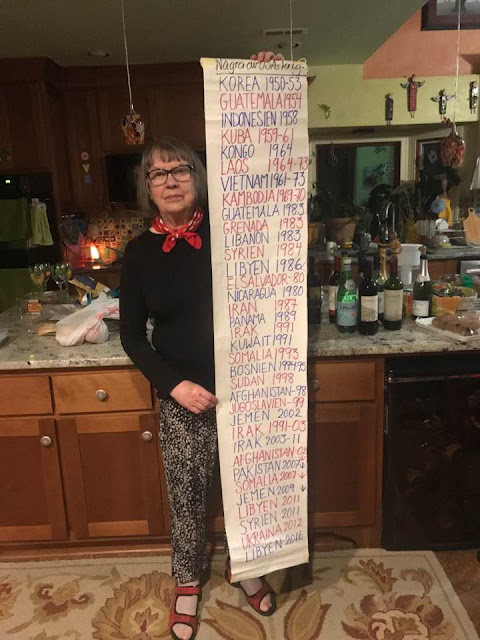 Några av USAs krig:
KOREA 1950-53
GUATEMALA 1954
INDONESIEN 1958
KUBA 1959-61
KONGO 1964
LAOS 1964-73
VIETNAM 1961-73
KAMBODJA 1969-70
GUATEMALA 1983
GRENADA 1983
LIBANON 1983
SYRIEN 1984
LIBYEN 1986
EL SALVADOR -80
NICARAGUA 1980
IRAN 1987
PANAMA 1989
IRAK 1991
KUWAIT 1991
SOMALIA 1993
BOSNIEN 1994-95
SUDAN 1998
AFGHANISTAN -98
JUGOSLAVIEN -99
JEMEN 2002
IRAK 1991-03
IRAK 2003-11
AFGHANISTAN -02
PAKISTAN 2007↓
SOMALIA 2007-↓
JEMEN 2009 ↓
LIBYEN 2011
SYRIEN 2011
UKRAINA 2012
LIBYEN 2016